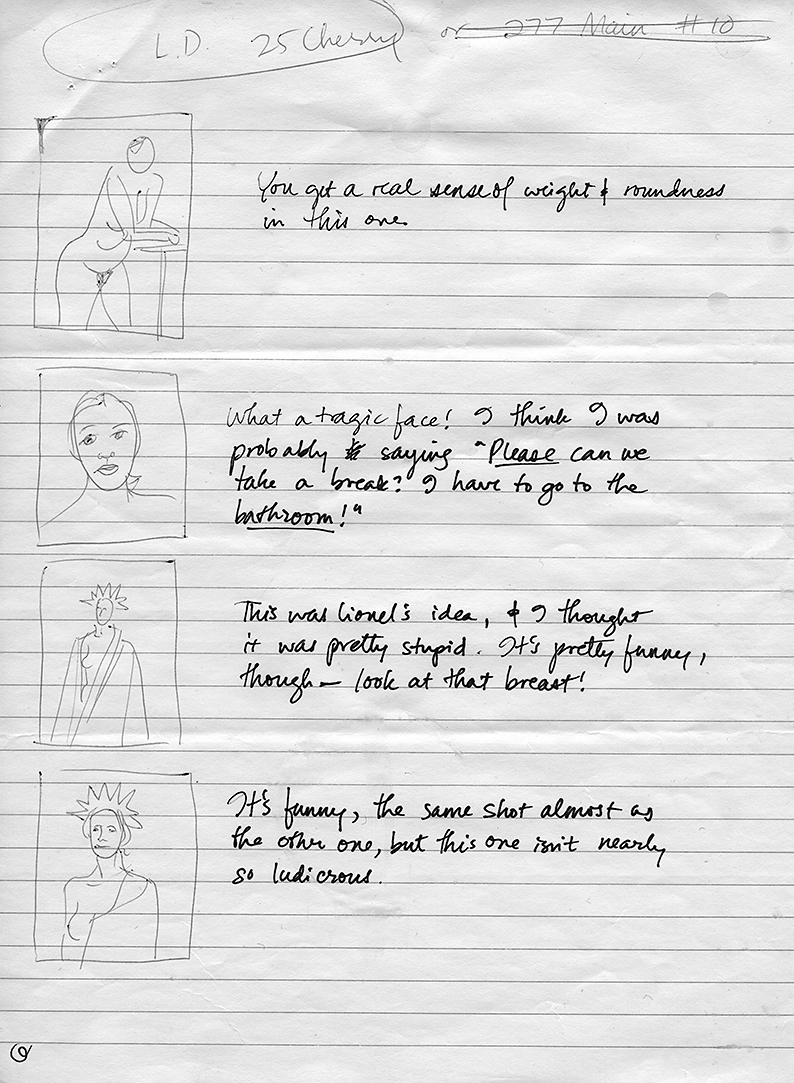 L.D. 25 Cherry or 277 Main #10
You get a real sense of weight & roundness
in this one.
What a tragic face! I think I was
probably saying "Please can we
take a break? I have to go to the
bathroom!"
This was Lionel's idea, & I thought
it was pretty stupid. It's pretty funny,
though — look at that breast!
It's funny, the same shot almost as
the other one, but this one isn't nearly
so ludicrous.